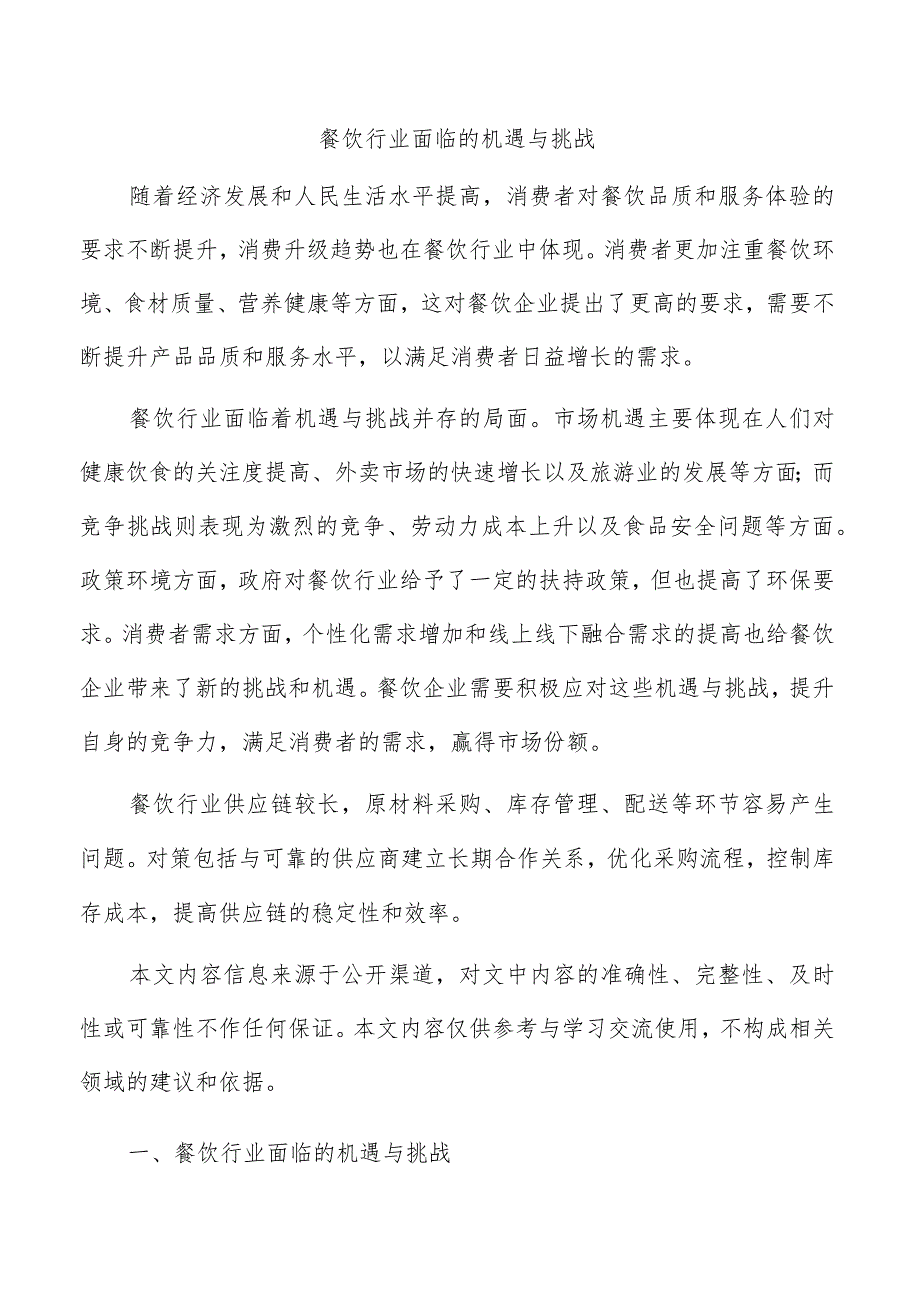 餐饮行业面临的机遇与挑战
随着经济发展和人民生活水平提高，消费者对餐饮品质和服务体验的
要求不断提升，消费升级趋势也在餐饮行业中体现。消费者更加注重餐饮环
境、食材质量、营养健康等方面，这对餐饮企业提出了更高的要求，需要不
断提升产品品质和服务水平，以满足消费者日益增长的需求。
餐饮行业面临着机遇与挑战并存的局面。市场机遇主要体现在人们对
健康饮食的关注度提高、外卖市场的快速增长以及旅游业的发展等方面；而
竞争挑战则表现为激烈的竞争、劳动力成本上升以及食品安全问题等方面。
政策环境方面，政府对餐饮行业给予了一定的扶持政策，但也提高了环保要
求。消费者需求方面，个性化需求增加和线上线下融合需求的提高也给餐饮
企业带来了新的挑战和机遇。餐饮企业需要积极应对这些机遇与挑战，提升
自身的竞争力，满足消费者的需求，赢得市场份额。
餐饮行业供应链较长，原材料采购、库存管理、配送等环节容易产生
问题。对策包括与可靠的供应商建立长期合作关系，优化采购流程，控制库
存成本，提高供应链的稳定性和效率。
本文内容信息来源于公开渠道，对文中内容的准确性、完整性、及时
性或可靠性不作任何保证。本文内容仅供参考与学习交流使用，不构成相关
领域的建议和依据。
一、餐饮行业面临的机遇与挑战